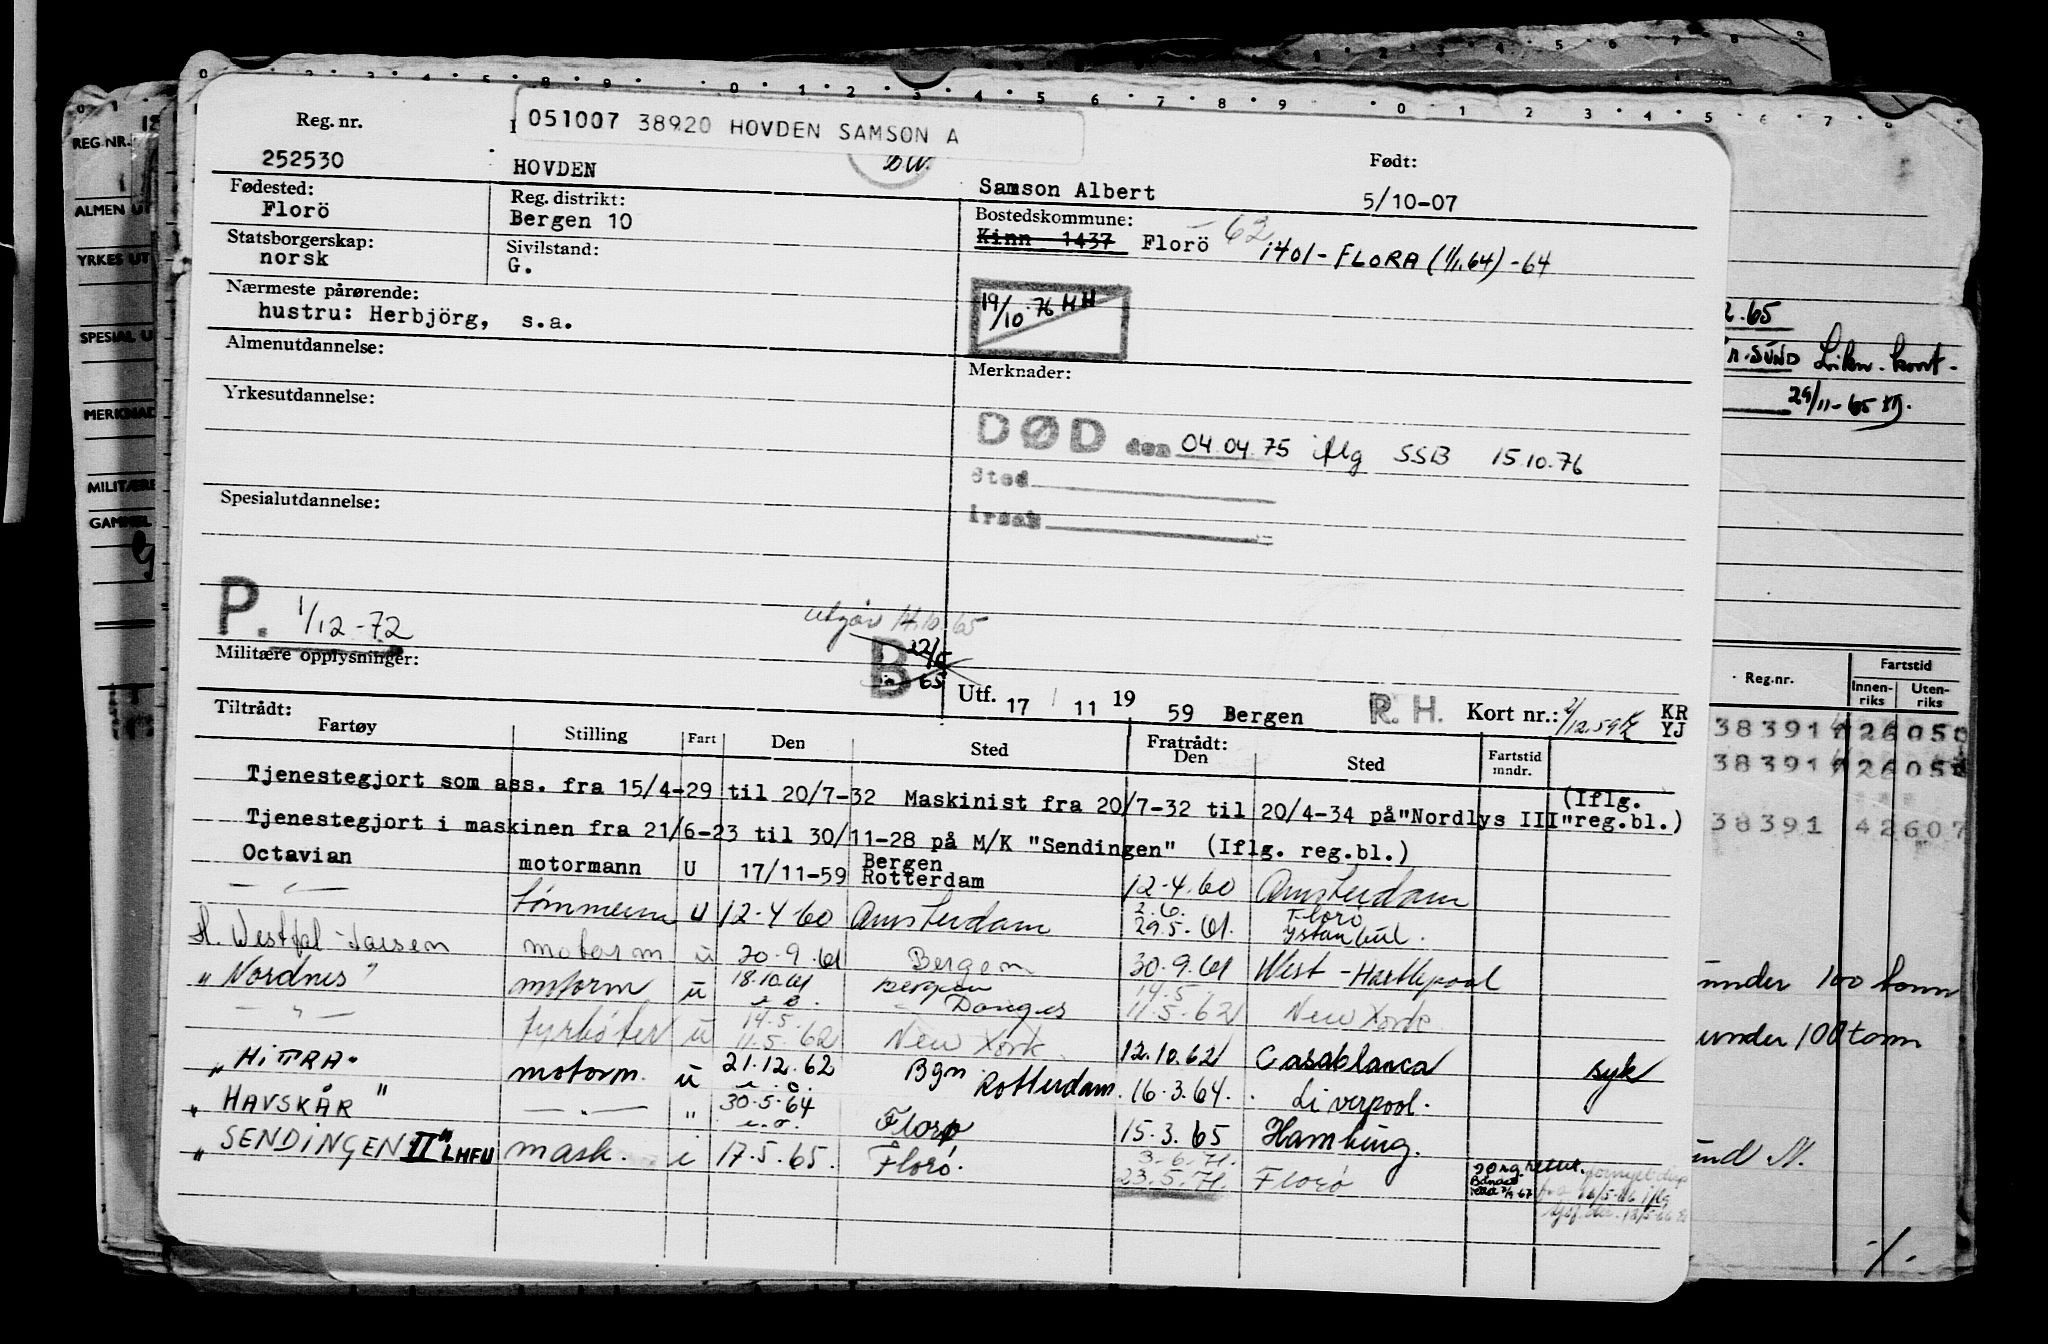 051007 38920 HOVDEN SAMSON A
Reg. nr.
252530
HOVDEN
Samson Albert
Født:
5/10-07
Fødested:
Florö
Reg. distrikt:
Bergen 10
Bostedskommune:
Kinn 1437 Florö -62 1401-FLORA (1/1.64) -64
Statsborgerskap:
norsk
Sivilstand:
G.
Nærmeste pårørende:
hustru: Herbjörg, s.a.
19/10.76 HH
Almenutdannelse:
Merknader:
Yrkesutdannelse:
DØD den 04.04.75 iflg SSB 15.10.76
Sted
Årsak
Spesialutdannelse:
P. 1/12-72
utgår 14.10.65
B 22/5 65
Militære opplysninger:
Utf. 17/11 1959 Bergen R.H. Kort nr.: 2/12.59 KR YJ
Tiltrådt:
Fartøy Stilling Fart Den Sted Fratrådt: Den Sted Fartstid mndr.
Tjenestegjort som ass. fra 15/4-29 til 20/7-32 Maskinist fra 20/7-32 til 20/4-34 på "Nordlys III" (Iflg. reg.bl.)
Tjenestegjort i maskinen fra 21/6-23 til 30/11-28 på M/K "Sendingen" (Iflg. reg.bl.)
Octavian motormann U 17/11-59 Bergen Rotterdam 12-4.60 Amsterdam
— " — tømmerm U 12-4-60 Amsterdam 2.6. 29.5.61. Florö Ystanbul.
H. Westfal-Larsen motorm u 20.9.61 Bergen 30.9.61 West-Hartlepool
"Nordnes" motorm u 18.10.61 e.o. Bergen Donges 14.5. 11.5.62 New York
— " — fyrbøter u 14.5. 11.5.62 New York 12.10.62 Casablanca syk
"HITRA" motorm. u 21.12.62 e.o. Bgn. Rotterdam. 16.3.64. Liverpool.
"HAVSKÅR" — " — " 30.5.64 e.o. Florø 15.3.65 Hamburg.
"SENDINGEN II" LHFU mask. i 17.5.65. Florö. 3.6.71. 23.5.71. Florö
REG.NR.
ALMEN UT
YRKES UT
SPESIAL U
MERKNAD
MILITÆRE
GAMMEL
2.65
SUND
29/11-65
Reg.nr.
Fartstid
Innen-riks
Uten-riks
38391 26050
38391 2605
38391 42607
under 100 tonn
under 100 tonn